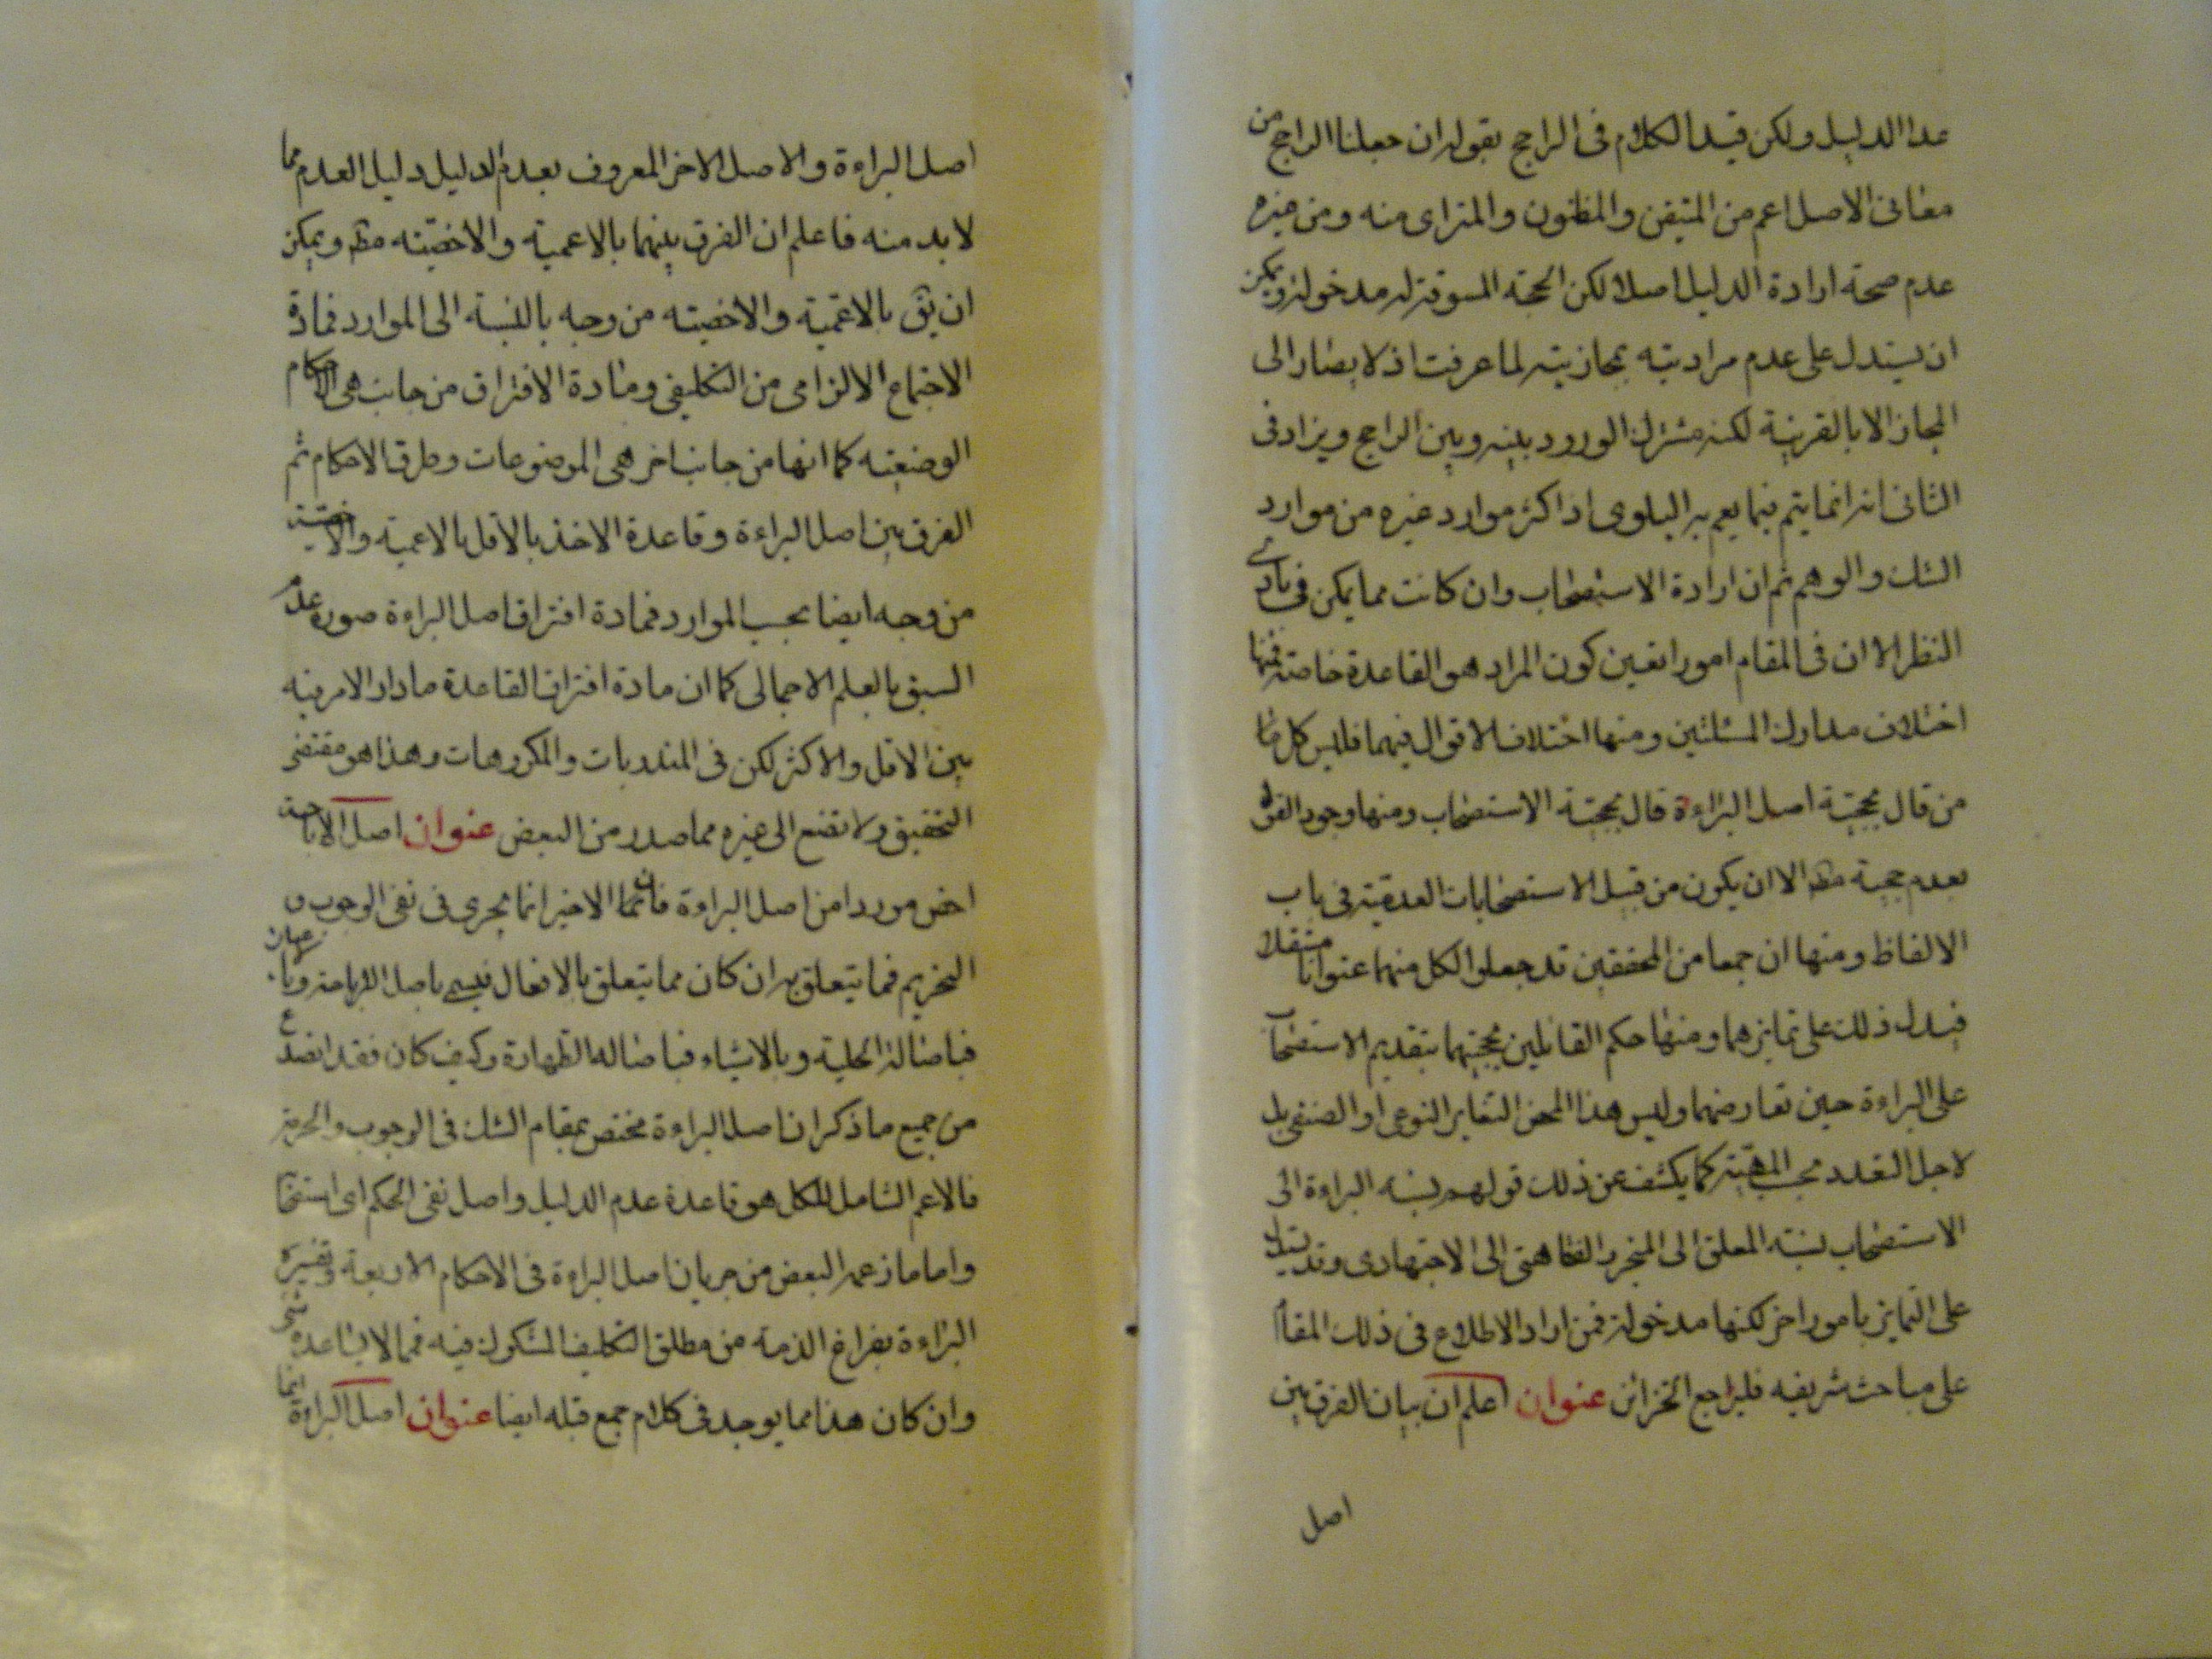 عدا الدليل ولكن قيد الكلام فى الراجح بقوله ان جعلنا الراجح من
معانى الاصل اعم من المتيقن والمظنون والمترائ منه ومن غيره
عدم صحة ارادة الدليل اصلا لكن الحجة المسوقة له مدخولة ويمكن
ان يستدل على عدم مراديته بمجازيته لما عرفت اذ لا يصار الى
المجاز الا بالقرينة لكنه مشترك الورود بينه وبين الراجح ويزاد فى
الثانى انه انما يتم فيما يعم به البلوى اذ اكثر موارد غيره من موارد
الشك والوهم ثم ان ارادة الاستصحاب وان كانت مما يمكن فى بادى
النظر الا ان فى المقام امورا تعين كون المراد هو القاعدة خاصة فمنها
اختلاف مدارك المسئلتين ومنها اختلاف الاقوال فيهما فليس كل
من قال بحجية اصل البراءة قال بحجية الاستصحاب ومنها وجود القول
بعدم حجية مط الا ان يكون من قبيل الاستصحابات العدمية فى باب
الالفاظ ومنها ان جمعا من المحققين قد جعلوا لكل منهما عنوانا مستقلا
فيدل ذلك على تمايزهما ومنها حكم القائلين بحجيتهما بتقديم الاستصحاب
على البراءة حين تعارضهما وليس هذا لمحض التغاير النوعى او الصنفى بل
لاجل التعدد بحسب المهية كما يكشف عن ذلك قولهم نسبة البراءة الى
الاستصحاب نسبة المعلق الى المنجز والفقاهتى الى الاجتهادى وقد يستدل
على التمايز بامور اخر لكنها مدخولة فمن اراد الاطلاع فى ذلك المقام
على مباحث شريفه فليراجع الخزائن عنوان اعلم ان بيان الفرق بين
اصل
اصل البراءة والاصل الاخر المعروف بعدم الدليل دليل العدم مما
لا بد منه فاعلم ان الفرق بينهما بالاعمية والاخصية مط ويمكن
ان يق بالاعمية والاخصية من وجه بالنسبة الى الموارد فمادة
الاجتماع الالزامى من التكليفى ومادة الافتراق من جانب هى الاحكام
الوضعية كما انها من جانب اخر هى الموضوعات وطرق الاحكام ثم
الفرق بين اصل البراءة وقاعدة الاخذ بالاقل بالاعمية والاخصية
من وجه ايضا بحسب الموارد فمادة افتراق اصل البراءة صورة عدم
السبق بالعلم الاجمالى كما ان مادة افتراق القاعدة ما دار الامر فيه
بين الاقل والاكثر لكن فى المندوبات والمكروهات وهذا هو مقتضى
التحقيق ولا تصغ الى غيره مما صدر من البعض عنوان اصل الاباحة
اخص موردا من اصل البراءة فان الاخير انما يجرى فى نفى الوجوب و
التحريم فما يتعلق به ان كان مما يتعلق بالافعال فيسمى باصل الاباحة
فباصالة الحلية وبالاشياء فباصالة الطهارة وكيف كان فقد انصدع
من جميع ما ذكر ان اصل البراءة مختص بمقام الشك فى الوجوب والحرمة
فالاعم الشامل للكل هو قاعدة عدم الدليل واصل نفى الحكم اى استصحا
واما ما زعمه البعض من جريان اصل البراءة فى الاحكام الاربعة وتفسيره
البراءة بفراغ الذمة من مطلق التكليف المشكوك فيه فمما لا يساعده شىء
وان كان هذا مما يوجد فى كلام جمع قبله ايضا عنوان اصل البراءة انما